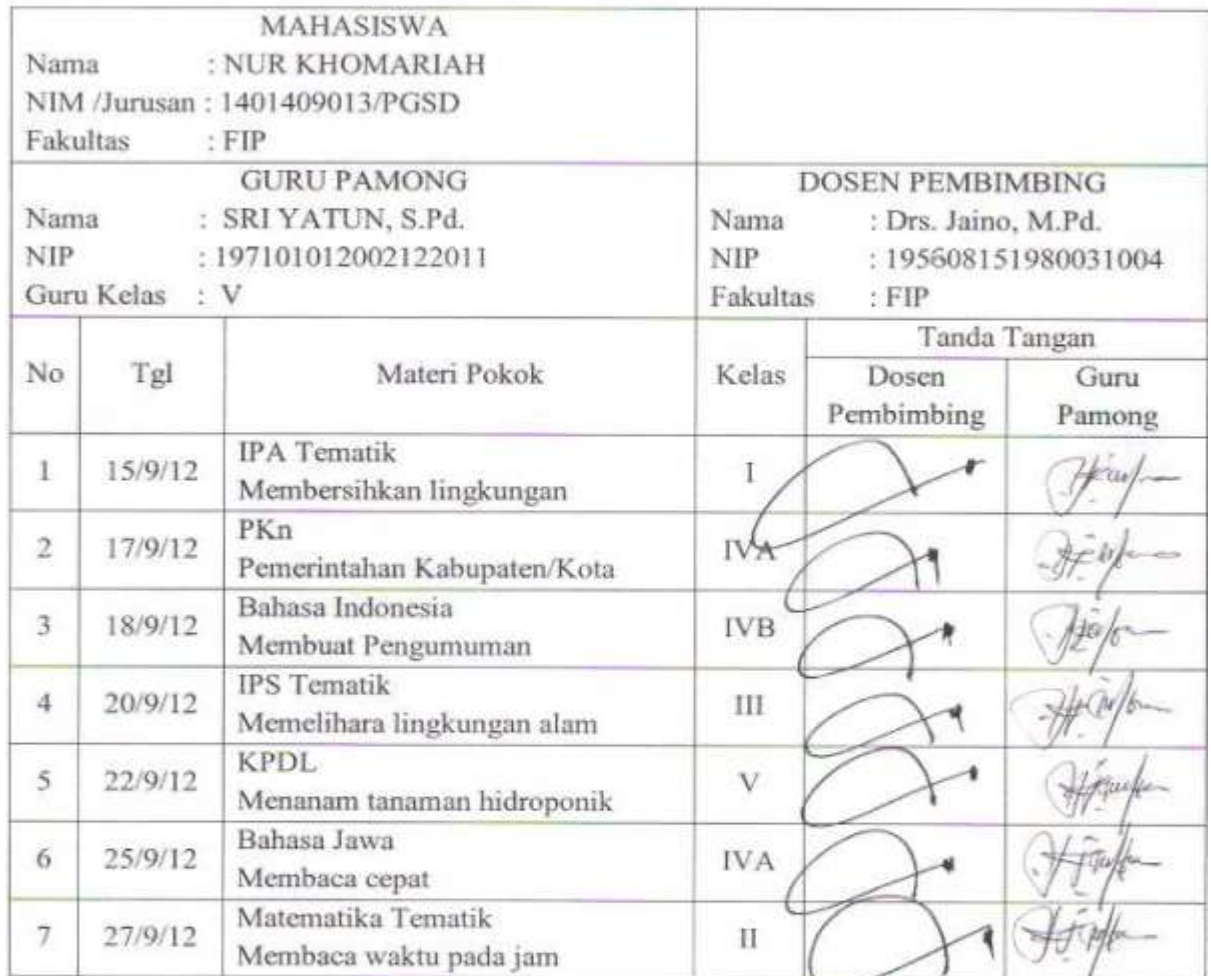 MAHASISWA
Nama : NUR KHOMARIAH
NIM /Jurusan : 1401409013/PGSD
Fakultas : FIP
GURU PAMONG
Nama : SRI YATUN, S.Pd.
NIP : 197101012002122011
Guru Kelas : V
DOSEN PEMBIMBING
Nama : Drs. Jaino, M.Pd.
NIP : 195608151980031004
Fakultas : FIP
No Tgl Materi Pokok Kelas Tanda Tangan
Dosen Pembimbing Guru Pamong
1 15/9/12 IPA Tematik I
Membersihkan lingkungan
2 17/9/12 PKn IVA
Pemerintahan Kabupaten/Kota
3 18/9/12 Bahasa Indonesia IVB
Membuat Pengumuman
4 20/9/12 IPS Tematik III
Memelihara lingkungan alam
5 22/9/12 KPDL V
Menanam tanaman hidroponik
6 25/9/12 Bahasa Jawa IVA
Membaca cepat
7 27/9/12 Matematika Tematik II
Membaca waktu pada jam